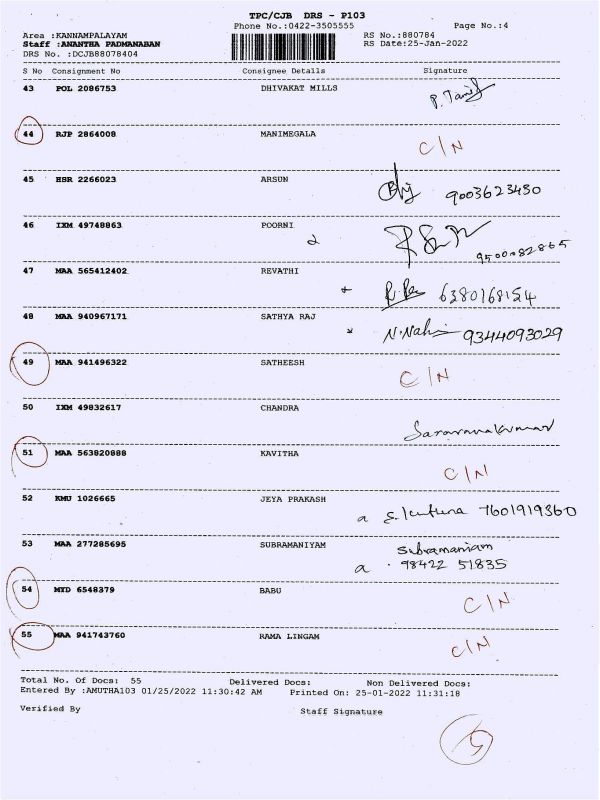 TPC/CJB DRS - P103
Phone No.:0422-3505555 Page No.:4
Area :KANNAMPALAYAM RS No.:880784
Staff :ANANTHA PADMANABAN RS Date:25-Jan-2022
DRS No. :DCJB88078404
S No Consignment No Consignee Details Signature
43 POL 2086753 DHIVAKAT MILLS
44 RJP 2864008 MANIMEGALA C/N
45 HSR 2266023 ARSUN 9003623430
46 IXM 49748863 POORNI 9500082865
47 MAA 565412402 REVATHI 6380168154
48 MAA 940967171 SATHYA RAJ 9344093029
49 MAA 941496322 SATHEESH C/N
50 IXM 49832617 CHANDRA Saravanakumar
51 MAA 563820888 KAVITHA C/N
52 KMU 1026665 JEYA PRAKASH 7601919360
53 MAA 277285695 SUBRAMANIYAM Subramaniam
98422 51835
54 MYD 6548379 BABU C/N
55 MAA 941743760 RAMA LINGAM C/N
Total No. Of Docs: 55 Delivered Docs: Non Delivered Docs:
Entered By :AMUTHA103 01/25/2022 11:30:42 AM Printed On: 25-01-2022 11:31:18
Verified By Staff Signature
5